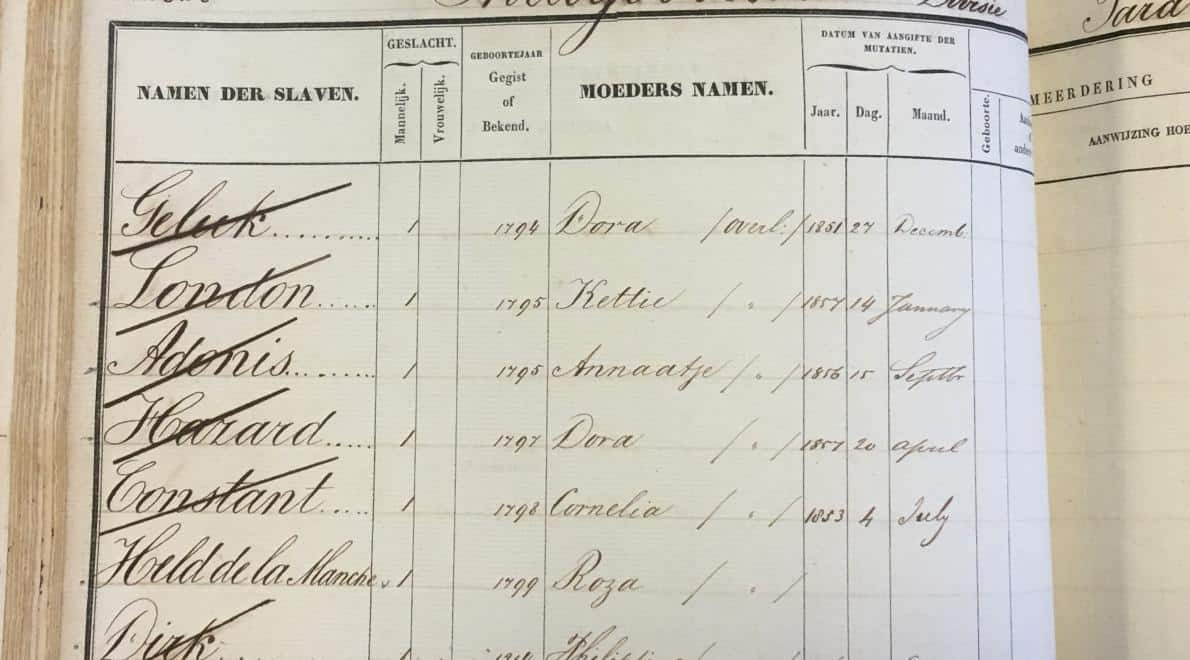 Divisie
GESLACHT.
GEBOORTEJAAR
Gegist
of
Bekend.
DATUM VAN AANGIFTE DER
MUTATIEN.
NAMEN DER SLAVEN.
Mannelijk.
Vrouwelijk.
MOEDERS NAMEN.
Jaar.
Dag.
Maand.
Geboorte.
MEERDERING
AANWIJZING HOE
Geluk 1 1794 Dora /overl:/ 1851 27 Decemb.
London 1 1795 Kettie / " / 1857 14 January
Adonis 1 1795 Annaatje / " / 1856 15 Septbr
Hazard 1 1797 Dora / " / 1857 20 April
Constant 1 1798 Cornelia / " / 1853 4 July
Held de la Manche 1 1799 Roza / " /
Dirk